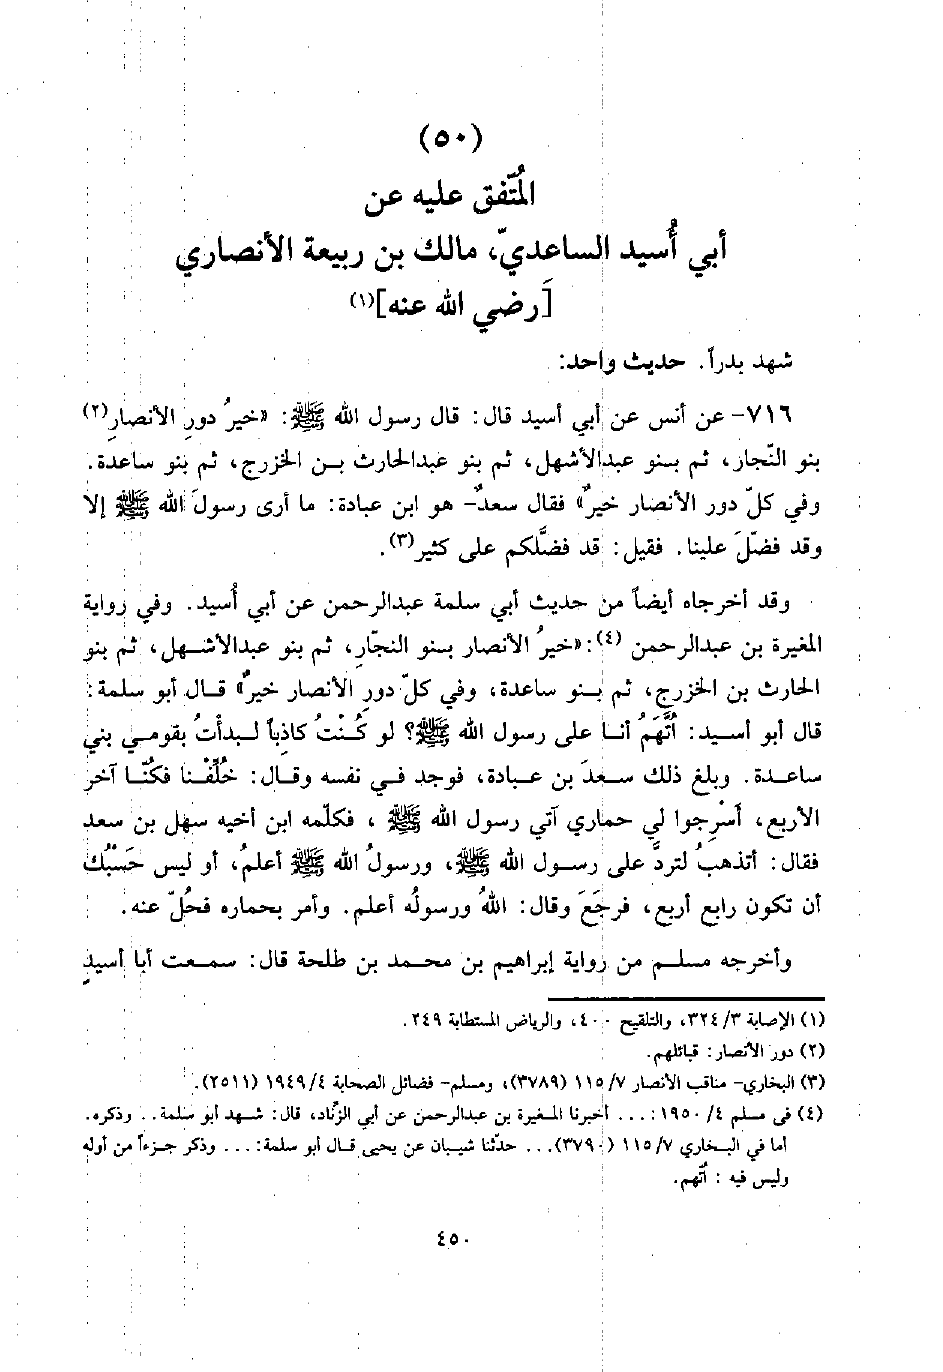 (٥٠)
المُتّفق عليه عن
أبي أُسيد الساعديّ، مالك بن ربيعة الأنصاري
[رضي الله عنه](١)
شهد بدراً. حديث واحد:
٧١٦- عن أنس عن أبي أسيد قال: قال رسول الله ﷺ: «خيرُ دورِ الأنصارِ(٢)
بنو النّجار، ثم بنو عبدالأشهل، ثم بنو عبدالحارث بن الخزرج، ثم بنو ساعدة.
وفي كلّ دور الأنصار خيرٌ» فقال سعدٌ- هو ابن عبادة: ما أرى رسولَ الله ﷺ إلا
وقد فضّلَ علينا. فقيل: قد فضَّلكم على كثير(٣).
وقد أخرجاه أيضاً من حديث أبي سلمة عبدالرحمن عن أبي أُسيد. وفي رواية
المغيرة بن عبدالرحمن (٤): «خيرُ الأنصار بنو النجّارِ، ثم بنو عبدالأشهل، ثم بنو
الحارث بن الخزرج، ثم بنو ساعدة، وفي كلّ دورِ الأنصار خيرٌ» قال أبو سلمة:
قال أبو أسيد: أُتَّهَمُ أنا على رسول الله ﷺ؟ لو كُنْتُ كاذباً لبدأتُ بقومي بني
ساعدة. وبلغ ذلك سعدَ بن عبادة، فوجد في نفسه وقال: خُلِّفْنا فكُنّا آخر
الأربع، أسْرِجوا لي حماري آتي رسول الله ﷺ ، فكلّمه ابن أخيه سهل بن سعد
فقال: أتذهبُ لتردَّ على رسول الله ﷺ، ورسولُ الله ﷺ أعلمُ، أو ليس حَسْبُك
أن تكون رابع أربع، فرجَعَ وقال: اللهُ ورسولُه أعلم. وأمر بحماره فحُلّ عنه.
وأخرجه مسلم من رواية إبراهيم بن محمد بن طلحة قال: سمعت أبا أسيدٍ
(١) الإصابة ٣٢٤/٣، والتلقيح ٤٠٠، والرياض المستطابة ٢٤٩.
(٢) دور الأنصار: قبائلهم.
(٣) البخاري- مناقب الأنصار ١١٥/٧ (٣٧٨٩)، ومسلم- فضائل الصحابة ١٩٤٩/٤ (٢٥١١).
(٤) في مسلم ١٩٥٠/٤: ... أخبرنا المغيرة بن عبدالرحمن عن أبي الزّناد، قال: شهد أبو سلمة.. وذكره.
أما في البخاري ١١٥/٧ (٣٧٩٠)... حدّثنا شيبان عن يحيى قال أبو سلمة: ... وذكر جزءاً من أوله
وليس فيه : أتّهم.
٤٥٠